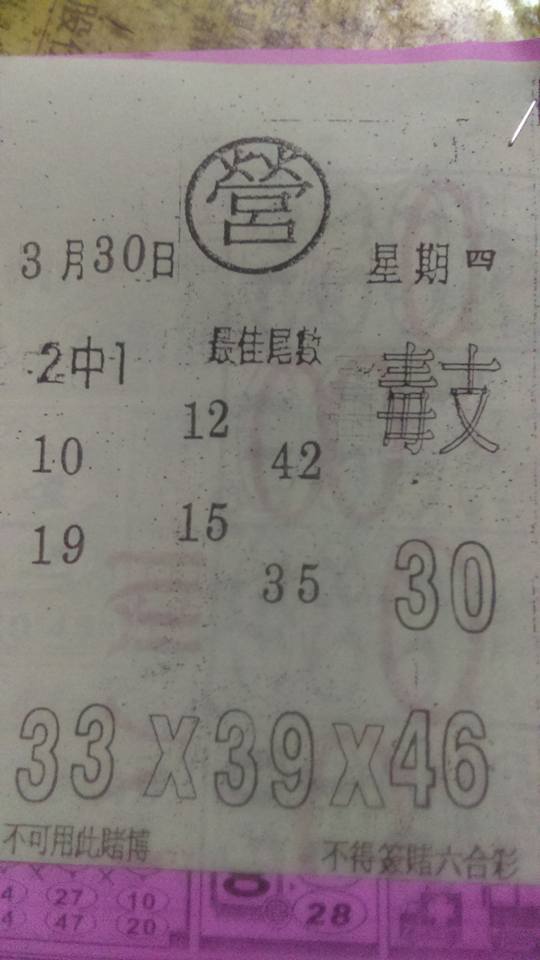 營
3月30日
星期四
2中1
最佳尾數
毒支
12
10
42
15
19
35
30
33X39X46
不可用此賭博
不得簽賭六合彩
4 27 10
4 47 20
28